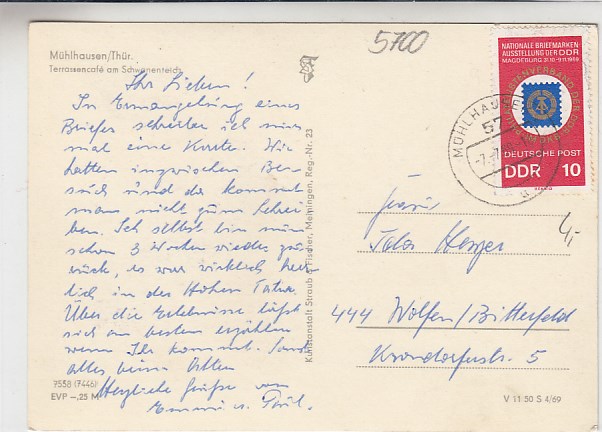 Mühlhausen/Thür.
Terrassencafé am Schwanenteich
5700
Ihr Lieben!
In Ermangelung eines
Briefes schreibe ich nur
mal eine Karte. Wir
hatten inzwischen Be-
such und da kommt
man nicht zum Schrei-
ben. Ich selbst bin nun
schon 3 Wochen wieder zu-
rück, es war wirklich herr-
lich in der Hohen Tatra.
Über die Erlebnisse läßt
sich am besten erzählen
wenn Ihr kommt. Sonst
alles beim Alten
Herzliche Grüße von
Emmi u. Paul.
7558 (7446)
EVP -,25 M
Kunstanstalt Straub & Fischer, Meiningen, Reg.-Nr. 23
NATIONALE BRIEFMARKEN-
AUSSTELLUNG DER DDR
MAGDEBURG 31.10.-9.11.1969
PHILATELISTENVERBAND DER DDR
DEUTSCHE POST
DDR 10
MÜHLHAUSEN
57
Frau
444 Wolfen/Bitterfeld
Krondorferstr. 5
4,-
V 11 50 S 4/69